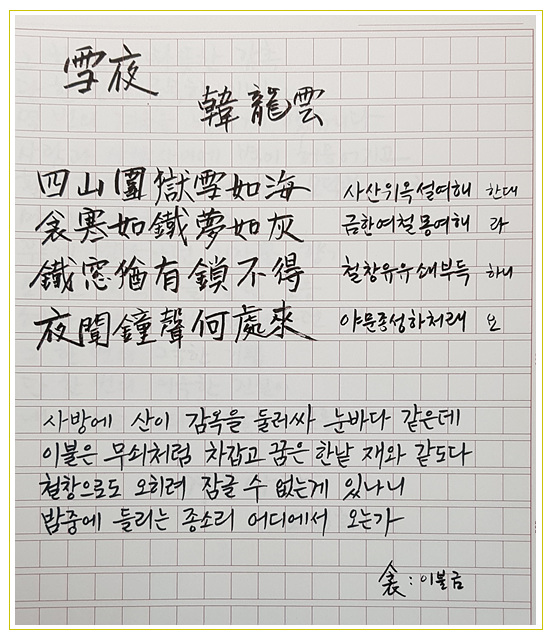 雪夜
韓龍雲
四山圍獄雪如海 사산위옥설여해 한대
衾寒如鐵夢如灰 금한여철몽여해 라
鐵窓猶有鎖不得 철창유유쇄부득 하니
夜聞鐘聲何處來 야문종성하처래 오
사방에 산이 감옥을 둘러싸 눈바다 같은데
이불은 무쇠처럼 차갑고 꿈은 한낱 재와 같도다
철창으로도 오히려 잠글 수 없는게 있나니
밤중에 들리는 종소리 어디에서 오는가
衾 : 이불금